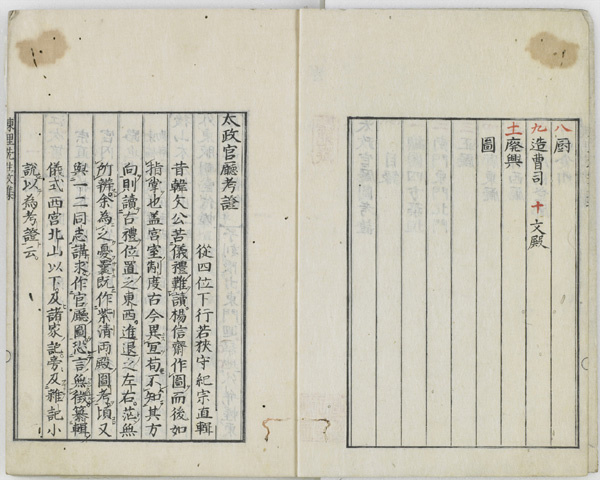 八 厨
九 造曹司 十 文殿
土 廃興
圖
太政官廳考證
從四位下行若狹守紀宗直輯
昔韓文公苦儀禮難讀楊信齋作圖而後如
指掌也蓋宮室制度古今異宜苟不知其方
向則讀古禮位置之東西進退之左右茫無
所辨余為之憂曩既作紫清兩殿圖考頃又
與一二同志講求作官廳圖恐言無徴纂輯
儀式西宮北山以下及諸家記旁及雜記小
說以為考證云